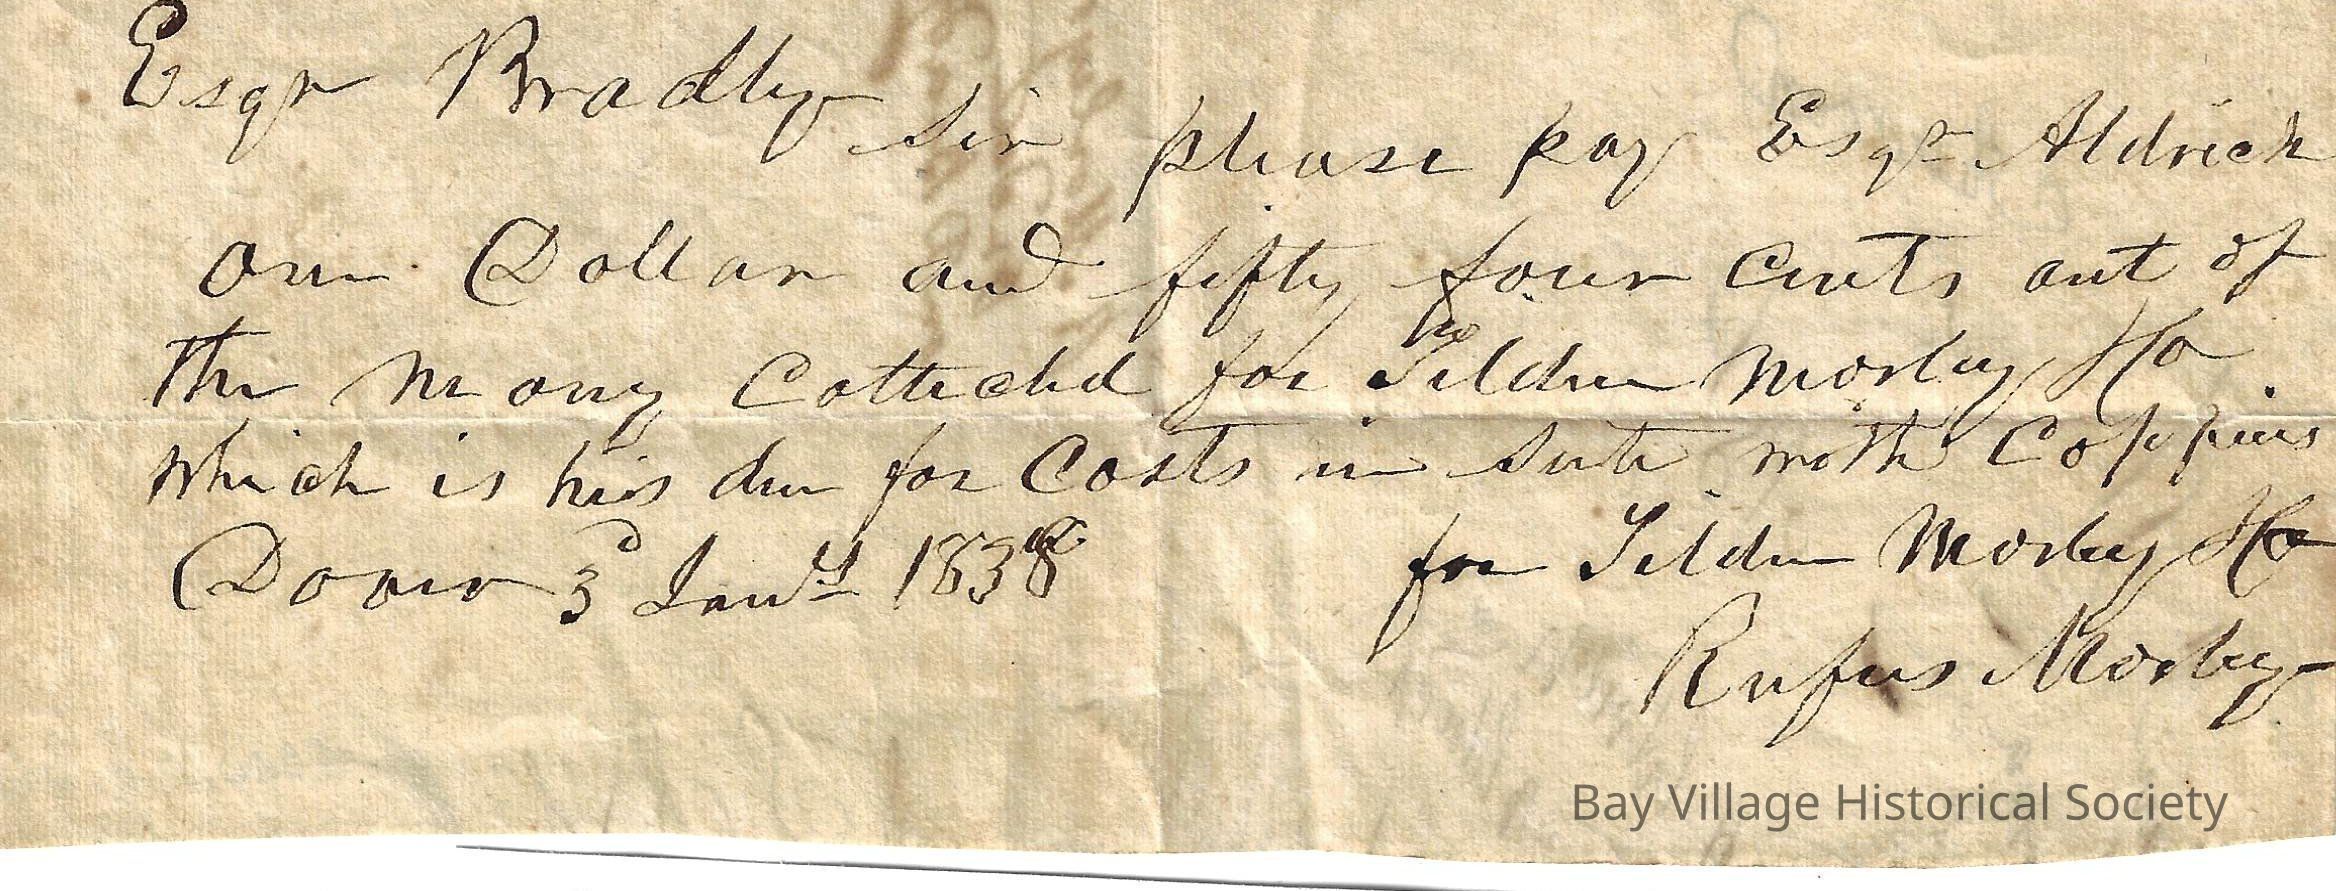 Esqr Bradley Sir please pay Esqr Aldrich
one Dollar and fifty four cents out of
the mony Collected for Tilden Morley & Co
which is his due for Costs in Sute with Coppius
Dover 3d Jany 1838 for Tilden Morley & Co
Rufus Morley
Bay Village Historical Society